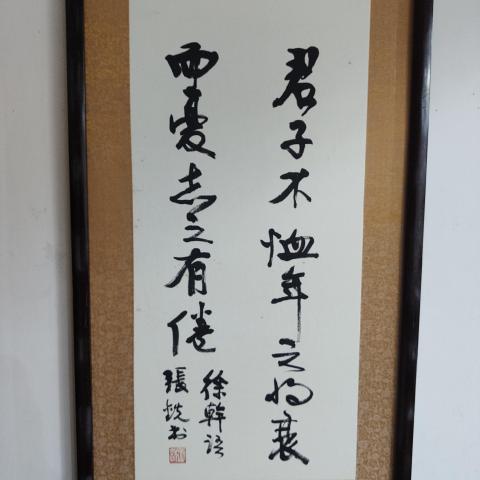 君子不恤年之将衰
而憂志之有倦
徐幹語
張銑书